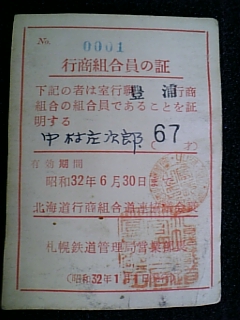 No. 0001
行商組合員の証
下記の者は室行 豊浦 行商
組合の組合員であることを証
明する
中村庄次郎 (67才)
有効期間
昭和32年6月30日
北海道行商組合連
札幌鉄道管理局営業
(昭和32年1月